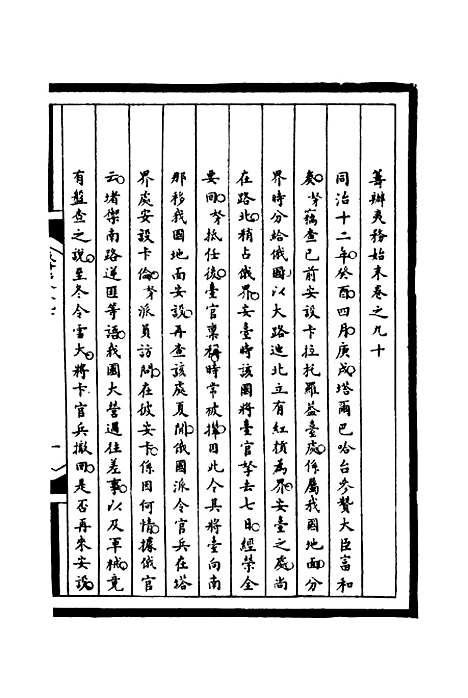 籌辦夷務始末卷之九十
同治十二年癸酉四月庚戌塔爾巴哈台參贊大臣富和
奏奴才竊查已前安設卡拉托羅蓋臺處係屬我國地面分
界時分給俄國以大路迤北立有紅樁為界安臺之處尚
在路北稍占俄界安臺時該國將臺官拏去七日經榮全
要回奴才抵任後臺官稟稱時常被攆因此令其將臺向南
那移我國地面安設再查該處夏間俄國派令官兵在塔
界處安設卡倫奴才派員訪問在彼安卡係因何情據俄官
云堵禦南路逆匪等語我國大營過往差事以及軍械竟
有盤查之說至冬令雪大將卡官兵撤回是否再來安設